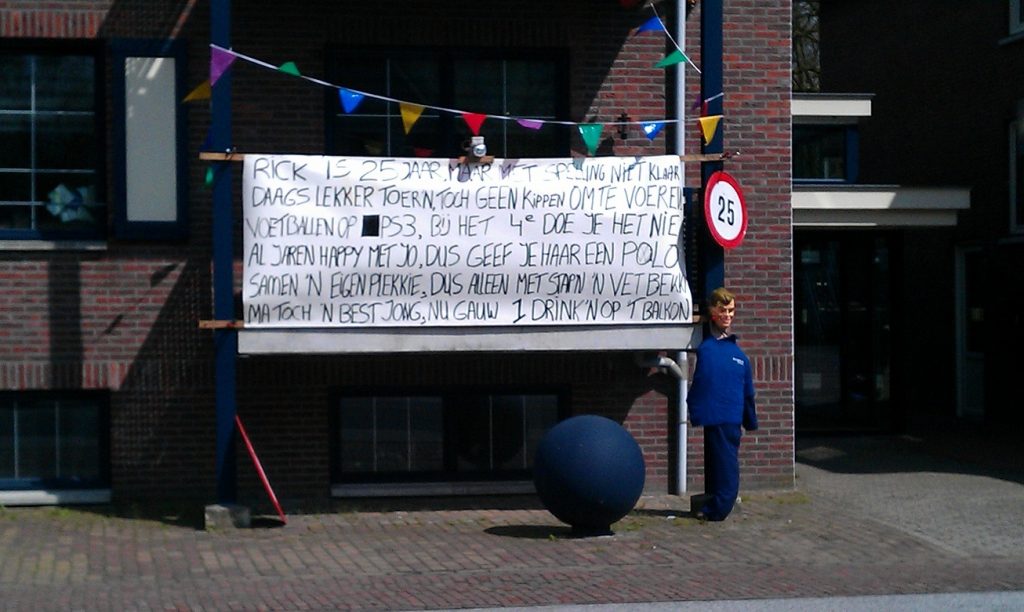 RICK IS 25 JAAR, MAAR MET SPELING NIET KLAAR
DAAGS LEKKER TOER'N, TOCH GEEN KIPPEN OM TE VOEREN
VOETBALLEN OP PS3, BIJ HET 4e DOE JE HET NIE
AL JAREN HAPPY MET JO, DUS GEEF JE HAAR EEN POLO
SAMEN 'N EIGEN PLEKKIE, DUS ALLEEN MET STAP'N 'N VET BEKKI
MA TOCH 'N BEST JONG, NU GAUW 1 DRINK'N OP 'T BALKON
25